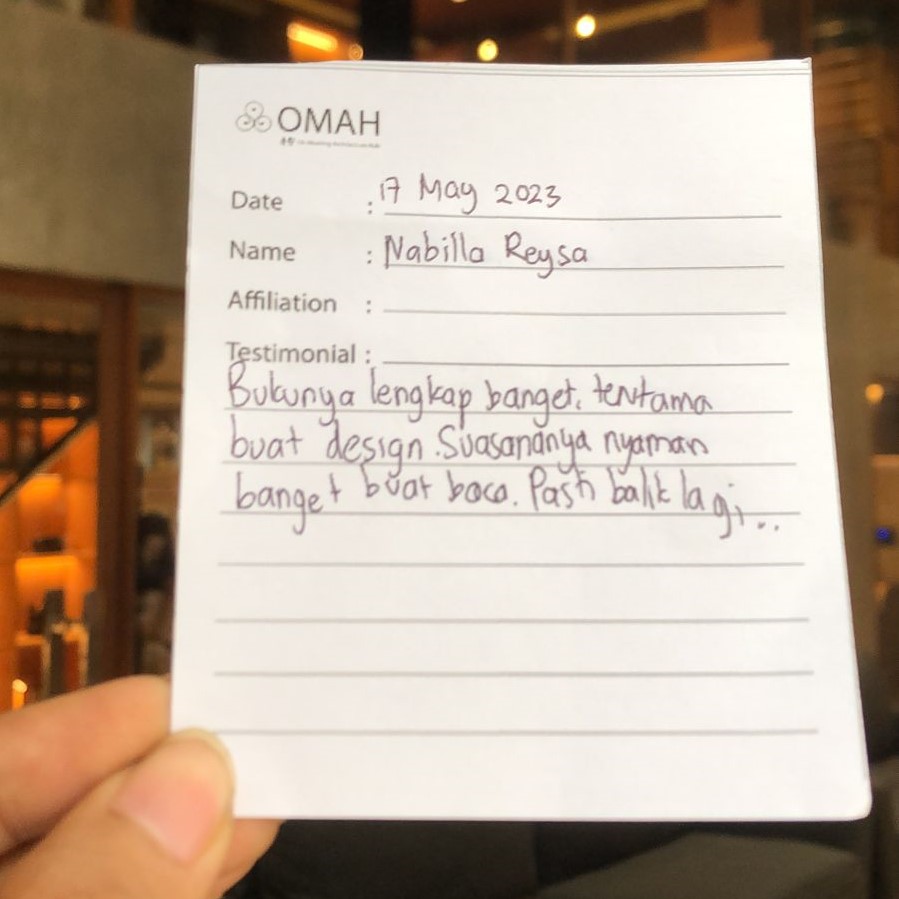 OMAH
Date : 17 May 2023
Name : Nabilla Reysa
Affiliation :
Testimonial :
Bukunya lengkap banget. terutama
buat design. Suasananya nyaman
banget buat baca. Pasti balik lagi...